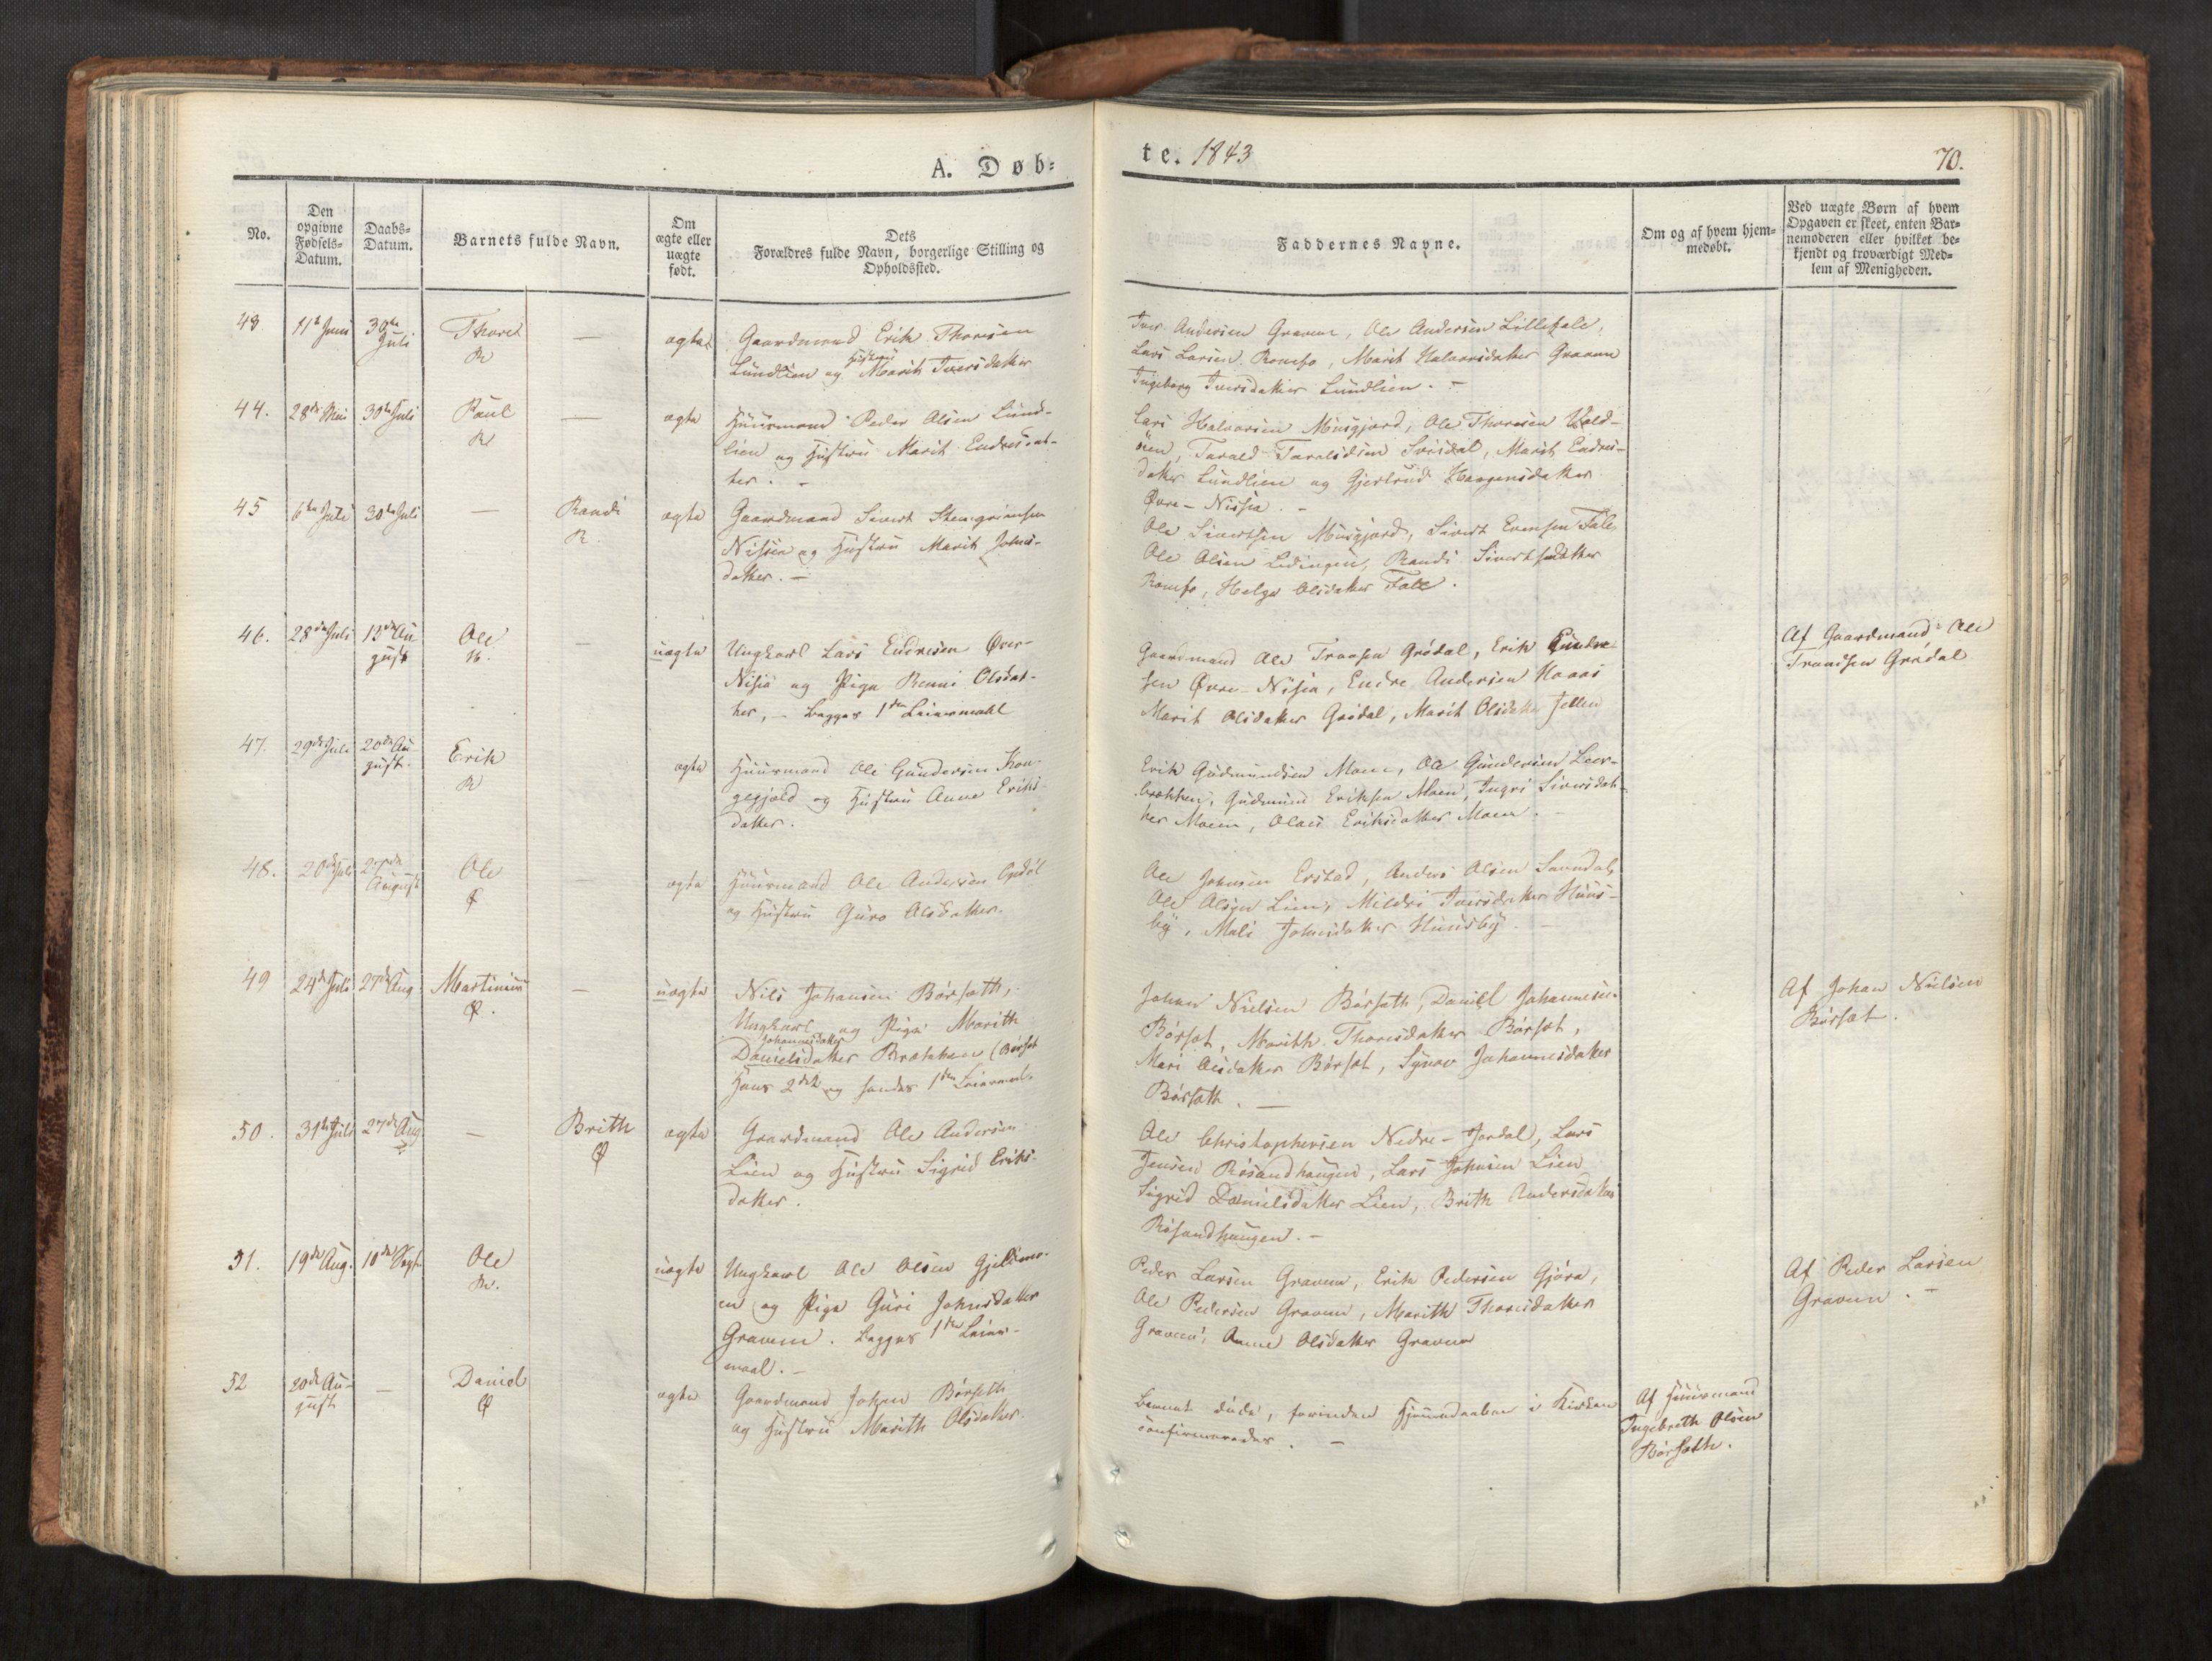 A. Døb=
te. 1843
70.
No.
Den
opgivne
Fødsels=
Datum.
Daabs=
Datum.
Barnets fulde Navn.
Om
ægte eller
uægte
født.
Dets
Forældres fulde Navn, borgerlige Stilling og
Opholdssted.
Faddernes Navne.
Om og af hvem hjem=
medøbt.
Ved uægte Børn af hvem
Opgaven er skeet, enten Bar=
nemoderen eller hvilket be=
kjendt og troværdigt Med=
lem af Menigheden.
43 11te Juni 30te Juli Thoret R — ægte
Gaardmand Erik Thoresen
Hustrue
Lundlien og Marit Iversdatter
Iver Andersen Gravem, Ole Andersen Lillefale,
Lars Larsen Romfo, Marit Halvorsdatter Gravem
Ingeborg Iversdatter Lundlien. —
44. 28de Mai 30te Juli Paul R — ægte
Huusmand Peder Olsen Lund-
lien og Hustru Marit Endresdat-
ter. —
Lars Halvorsen Musgjerd, Ole Thoresen Vold-
Tarald Taraldsen Marit Endres-
datter Lundlien og Gjertrud Haagensdatter
Øvre-Nisja. —
45 6te Juli 30te Juli — Randi R. ægte
Gaardmand Sivert Stengrimsen
Nisja og Hustru Marit Johns-
datter. —
Ole Sivertsen Musgjerd, Sivert Evensen Fale
Ole Olsen Ledingen, Randi Sivertsdatter
Romfo, Helga Olsdatter Fale.
46. 28de Juli 13de Au
gust Ole R. — uægte
Ungkarl Lars Endresen Øvre-
Nisja og Pige Renni Olsdat-
ter, — begges 1ste Leiermaal
Gaardmand Ole Tronsen Grødal, Erik Endre
sen Øvre-Nisja, Endre Andersen Haaas
Marit Olsdatter Grødal, Marit Olsdatter
Af Gaardmand Ole
Trondsen Grødal
47. 29de Juli 20de Au-
gust. Erik R ægte
Huusmand Ole Gundersen Kon
gsgjæld og Hustru Anne Eriks
datter.
Erik Gudmundsen Moen, Ole Gundersen Leer-
brækken, Gudmund Eriksen Moen, Ingri Siversdat-
ter Moen, Olaus Eriksdatter Moen. —
48. 20de Juli 27de
August Ole Ø — ægte
Huusmand Ole Andersen Opdøl
og Hustru Guro Olsdatter.
Ole Johnsen Erstad, Anders Olsen Sundal,
Ole Olsen Lien, Mildri Iversdatter Huus-
by, Mali Johnsdatter Huusby. —
49 24de Juli 27de Aug. Martinus Ø. — uægte
Nils Johansen Børsæth,
Ungkarl og Pige Marith
Johannesdatter
Danielsdatter Brækken (Børsæt
Hans 2det og hendes 1ste Leiermaal.
Johan Nielsen Børsæth, Daniel Johannesen
Børsæt, Marith Thoresdatter Børsæt,
Mari Olsdatter Børsæt, Synnev Johannesdatter
Børsæth. —
Af Johan Nielsen
Børsæt.
50. 31te Juli 27de Aug — Brith Ø ægte
Gaardmand Ole Andersen
Lien og Hustru Sigrid Eriks-
datter.
Ole Christophersen Nedre-Jordal, Lars
Jensen Røsandhaugen, Lars Johnsen Lien
Sigrid Danielsdatter Lien, Brith Andersdatter
Røsandhaugen. —
51. 19de Aug. 10de Sept. Ole R. uægte
Ungkarl Ole Olsen Gjeldmo-
en og Pige Guri Johnsdatter
Gravem. begges 1ste Leier-
maal. —
Peder Larsen Gravem, Erik Pedersen Gjøra,
Ole Pedersen Gravem, Marith Thoresdatter
Gravem, Anne Olsdatter Gravem
Af Peder Larsen
Gravem. —
52 20de Au-
gust — Daniel Ø ægte
Gaardmand Johan Børseth
og Hustru Marith Olsdatter.
Barnet døde, forinden Hjemmedaaben i Kirken
confirmeredes. —
Af Huusmand
Ingebreth Olsen
Børsæth.